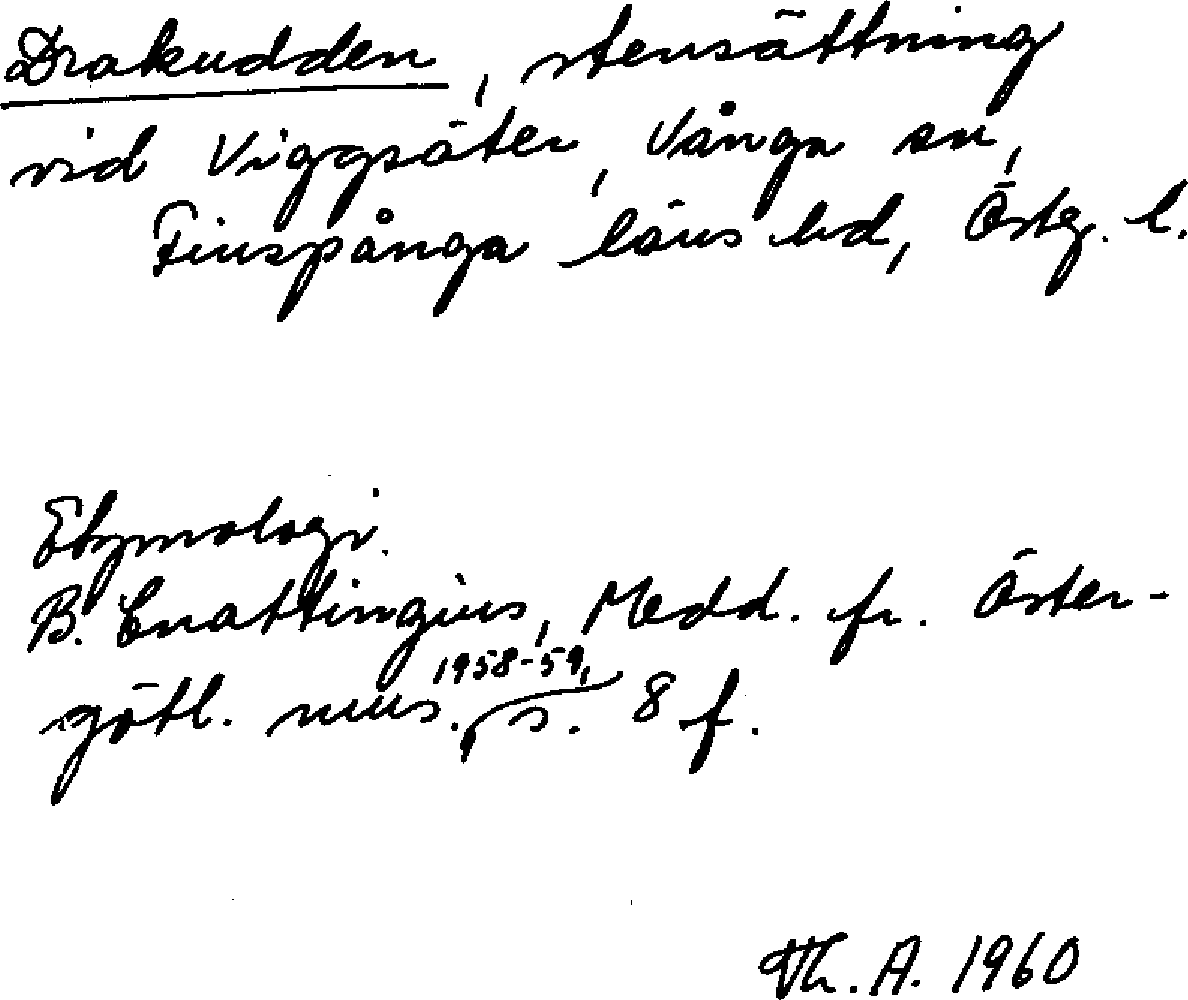 Drakudden, stensättning
vid Viggsäter, Vånga sn,
Finspånga läns hd, Östg. l.
Etymologi.
B. Cnattingius, Medd. fr. Öster-
götl. mus. 1958-59, s. 8 f.
Th. A. 1960